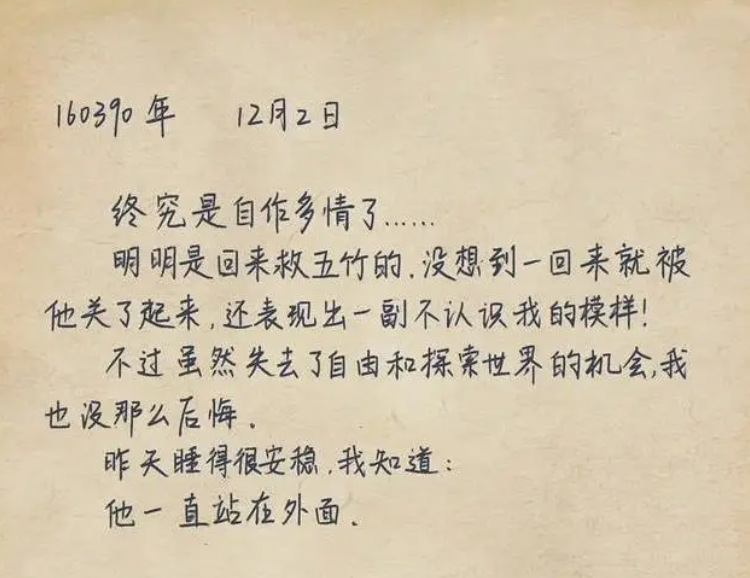 160390年 12月2日
终究是自作多情了……
明明是回来救五竹的,没想到一回来就被
他关了起来,还表现出一副不认识我的模样!
不过虽然失去了自由和探索世界的机会,我
也没那么后悔。
昨天睡得很安稳,我知道:
他一直站在外面。